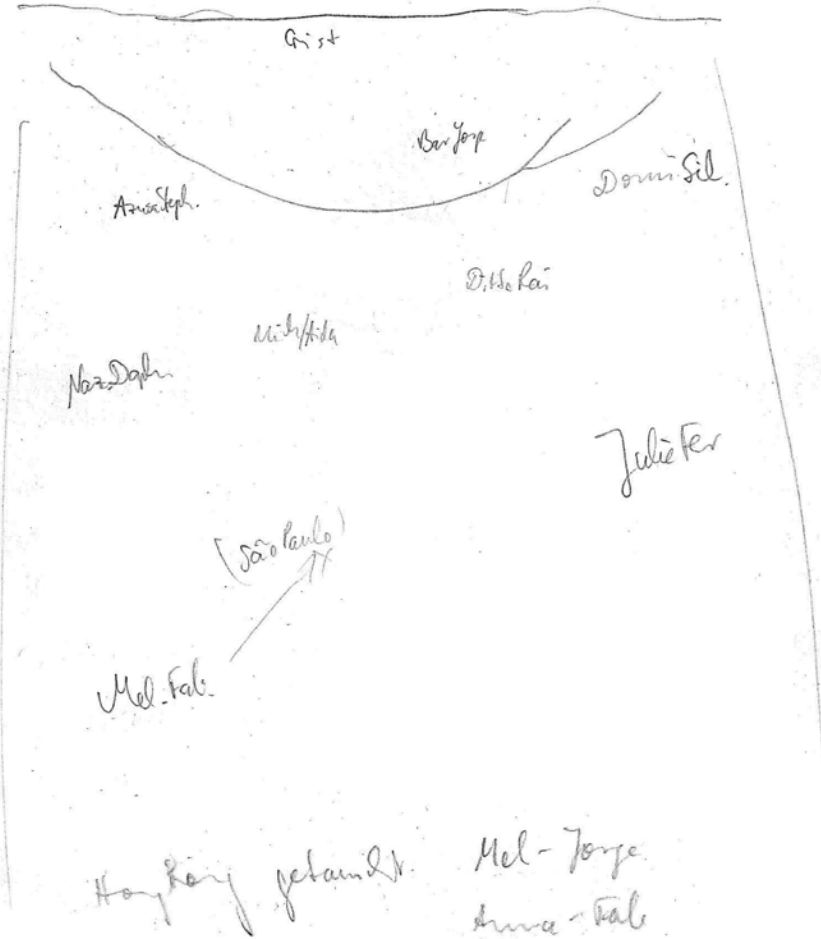 Crist
Bar Jorge
Domi Sil.
Azusa Steph.
Ditta Rai
Mich/Aida
Naz. Daph.
Julie Fer
(São Paulo)
Mel. Fab.
Hong Kong getauscht. Mel - Jorge
Anna - Fab